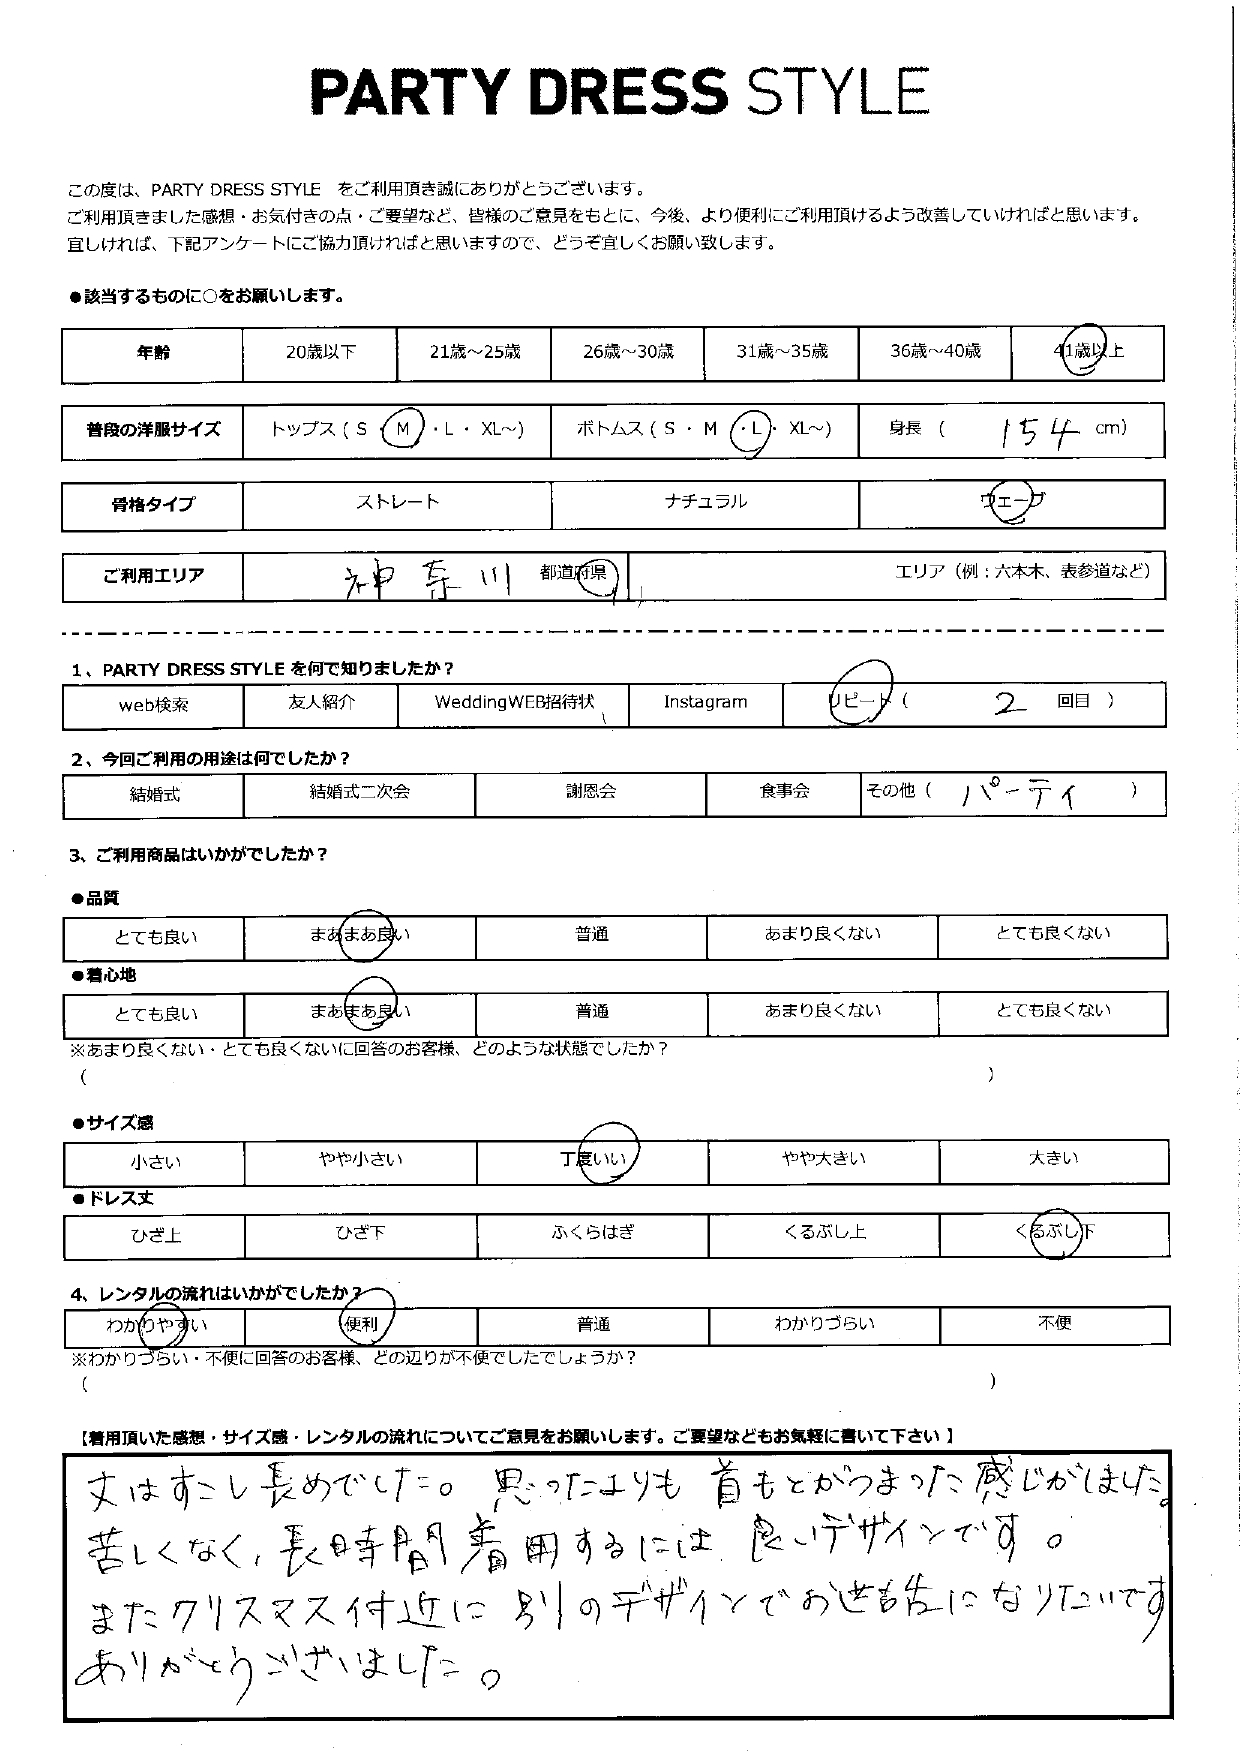 PARTY DRESS STYLE
この度は、PARTY DRESS STYLE　をご利用頂き誠にありがとうございます。
ご利用頂きました感想・お気付きの点・ご要望など、皆様のご意見をもとに、今後、より便利にご利用頂けるよう改善していければと思います。
宜しければ、下記アンケートにご協力頂ければと思いますので、どうぞ宜しくお願い致します。
●該当するものに○をお願いします。
年齢 20歳以下 21歳～25歳 26歳～30歳 31歳～35歳 36歳～40歳 41歳以上
普段の洋服サイズ トップス ( S ・ M ・ L ・ XL～) ボトムス ( S ・ M ・ L ・ XL～) 身長 ( 154 cm)
骨格タイプ ストレート ナチュラル ウェーブ
ご利用エリア 神奈川 都道府県 エリア（例：六本木、表参道など）
1、PARTY DRESS STYLE を何で知りましたか？
web検索 友人紹介 WeddingWEB招待状 Instagram リピート ( 2 回目 )
2、今回ご利用の用途は何でしたか？
結婚式 結婚式二次会 謝恩会 食事会 その他 ( パーティ )
3、ご利用商品はいかがでしたか？
●品質
とても良い まあまあ良い 普通 あまり良くない とても良くない
●着心地
とても良い まあまあ良い 普通 あまり良くない とても良くない
※あまり良くない・とても良くないに回答のお客様、どのような状態でしたか？
( )
●サイズ感
小さい やや小さい 丁度いい やや大きい 大きい
●ドレス丈
ひざ上 ひざ下 ふくらはぎ くるぶし上 くるぶし下
4、レンタルの流れはいかがでしたか？
わかりやすい 便利 普通 わかりづらい 不便
※わかりづらい・不便に回答のお客様、どの辺りが不便でしたでしょうか？
( )
【着用頂いた感想・サイズ感・レンタルの流れについてご意見をお願いします。ご要望などもお気軽に書いて下さい】
丈はすこし長めでした。思ったよりも首もとがつまった感じがしました。
苦しくなく、長時間着用するには良いデザインです。
またクリスマス付近に別のデザインでお世話になりたいです
ありがとうございました。